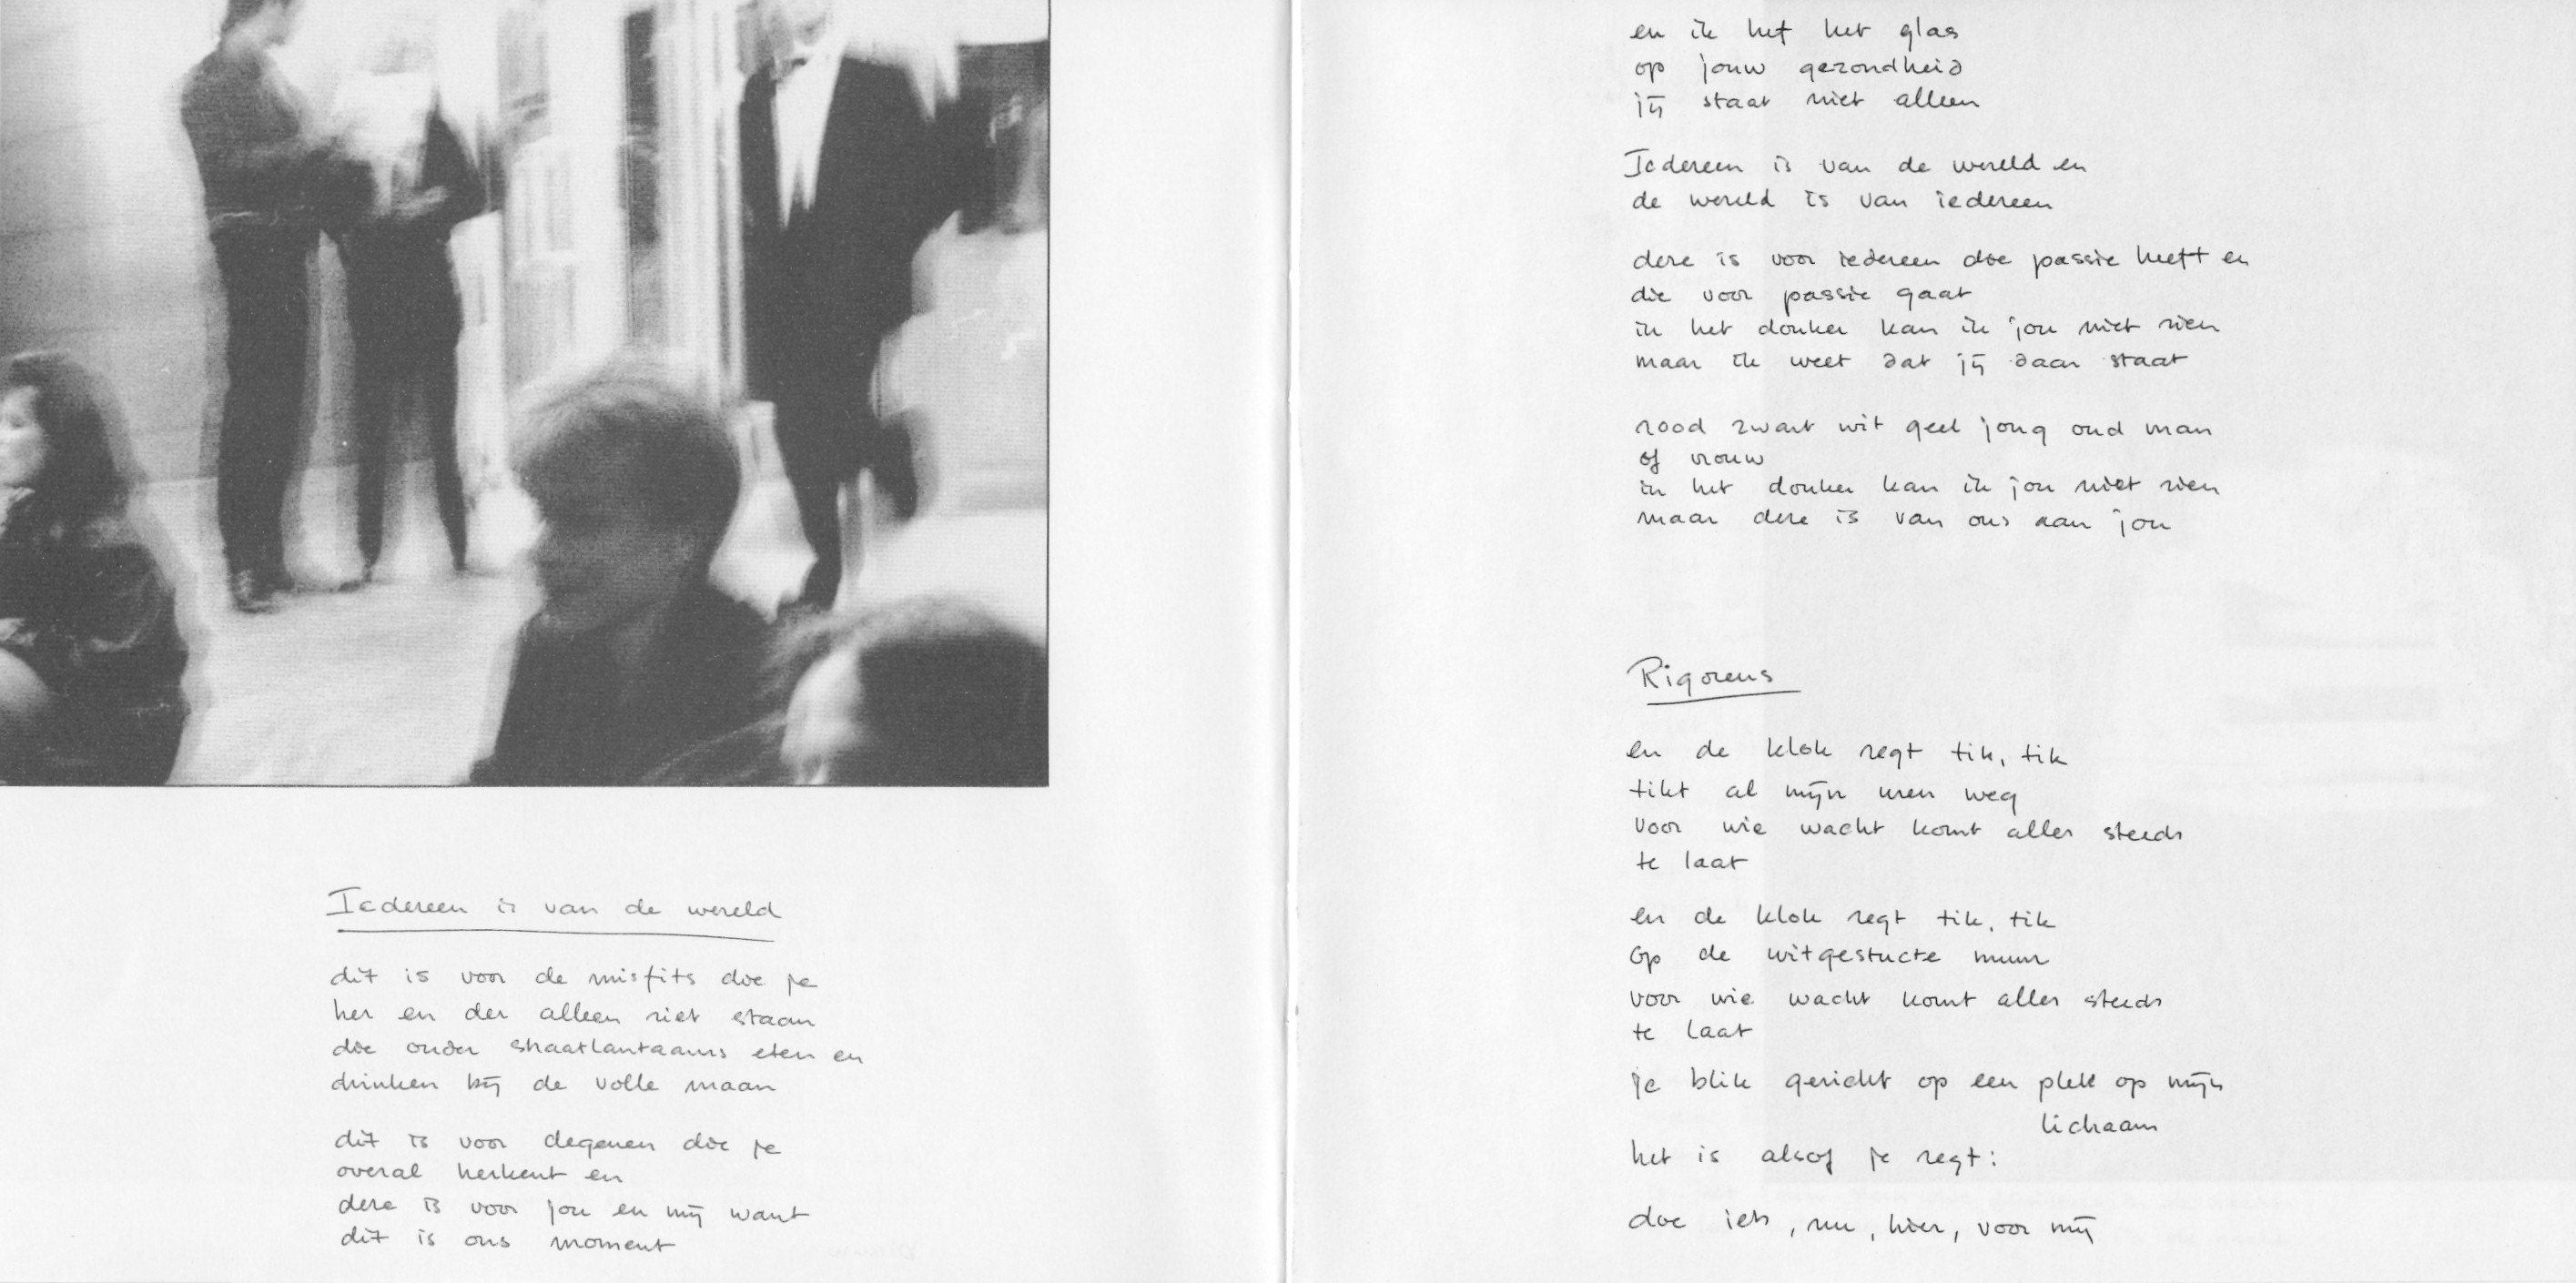 Iedereen is van de wereld
dit is voor de misfits die je
her en der alleen ziet staan
die onder straatlantaarns eten en
drinken bij de volle maan
dit is voor degenen die je
overal herkent en
deze is voor jou en mij want
dit is ons moment
en ik hef het glas
op jouw gezondheid
jij staat niet alleen
Iedereen is van de wereld en
de wereld is van iedereen
deze is voor iedereen die passie heeft en
die voor passie gaat
in het donker kan ik jou niet zien
maar ik weet dat jij daar staat
rood zwart wit geel jong oud man
of vrouw
in het donker kan ik jou niet zien
maar deze is van ons aan jou
Rigoreus
en de klok zegt tik, tik
tikt al mijn uren weg
voor wie wacht komt alles steeds
te laat
en de klok zegt tik, tik
op de witgestucte muur
voor wie wacht komt alles steeds
te laat
je blik gericht op een plek op mijn
lichaam
het is alsof je zegt:
doe iets, nu, hier, voor mij